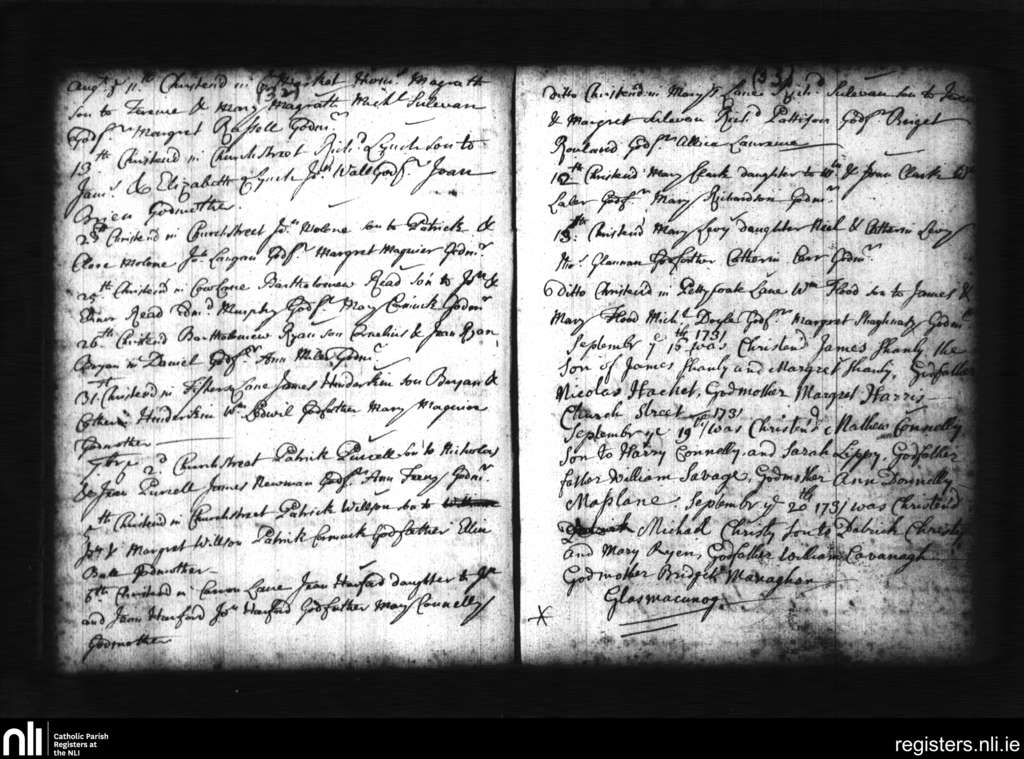 Augt ye 11th Christend in Thoms Magrath
(32)
son to Terence & Mary Magrath Michl Sulevan
Godfr Margret Rassell Godmr
13th Christend in Churchstreet Richd Lynch son to
Jams & Elizabeth Lynch Jon Wall Godfr Joan
Brien Godmother
2d Christend in Churchstreet Jon Molone son to Patrick &
Clore Molone Jon Langan Godfr Margret Maguier Godmr
25th Christend in Cow Lane Bartholomew Read son to Jon &
Elinor Read Edmd Murphy Godfr Mary Godmr
26th Christend Bartholomew Ryan son Cornelius & Jean Ryan
Bryan Daniel Godfr Ann Miles Godmr
31st Christend in Fishers Lane James Hinderkin son Bryan &
Cathern Hinderkin Wm Godfather Mary Maguier
Godmother
7bre 2d Churchstreet Patrick Purcell son to Nicholas
& Jean Purcell James Newman Godfr Ann Godmr
5th Christend in Churchstreet Patrick Willson son to
Jon & Margret Willson Patrick Cormick Godfather Elin
Godmother
6th Christend in Lane Jean Harford daughter to Jon
and Jean Harford Jon Harford Godfather Mary Connelly
Godmother
(33)
ditto Christend in Marys Lane Richd Sulevan son to
& Margret Sulevan Richd Pattison Godfr Briget
Rowland Godfr Allice Laurence
12th Christend Mary Clark daughter to Wm & Jean Clarke
Lalor Godfr Mary Richardson Godmr
13th Christend Mary Levy daughter Neal & Catherin Levy
Thos Glannan Godfather Catherin Carr Godmr
ditto Christend in Pettycoate Lane Wm Flood son to James &
Mary Flood Michl Doyle Godfr Margret Shaghnasy Godmr
Septembr ye 15th 1731 was Christend James Shanly the
Son of James Shanly and Margret Shanly, Godfather
Nicolas Hachet, Godmother Margret Harris
Church Street
Septembr ye 19th 1731 was Christend Mathew Connelly
Son to Harry Connelly and Sarah Lippy, Godfather
father William Savage, Godmother Ann Donnelly
Maplane. Septembr ye 20th 1731 was Christend
Michael Christy son to Patrick Christy
and Mary Ryen, Godfather William Cavanagh
Godmother Bridget Managhan
Glasmacunog.
nli
Catholic Parish
Registers at
the NLI
registers.nli.ie